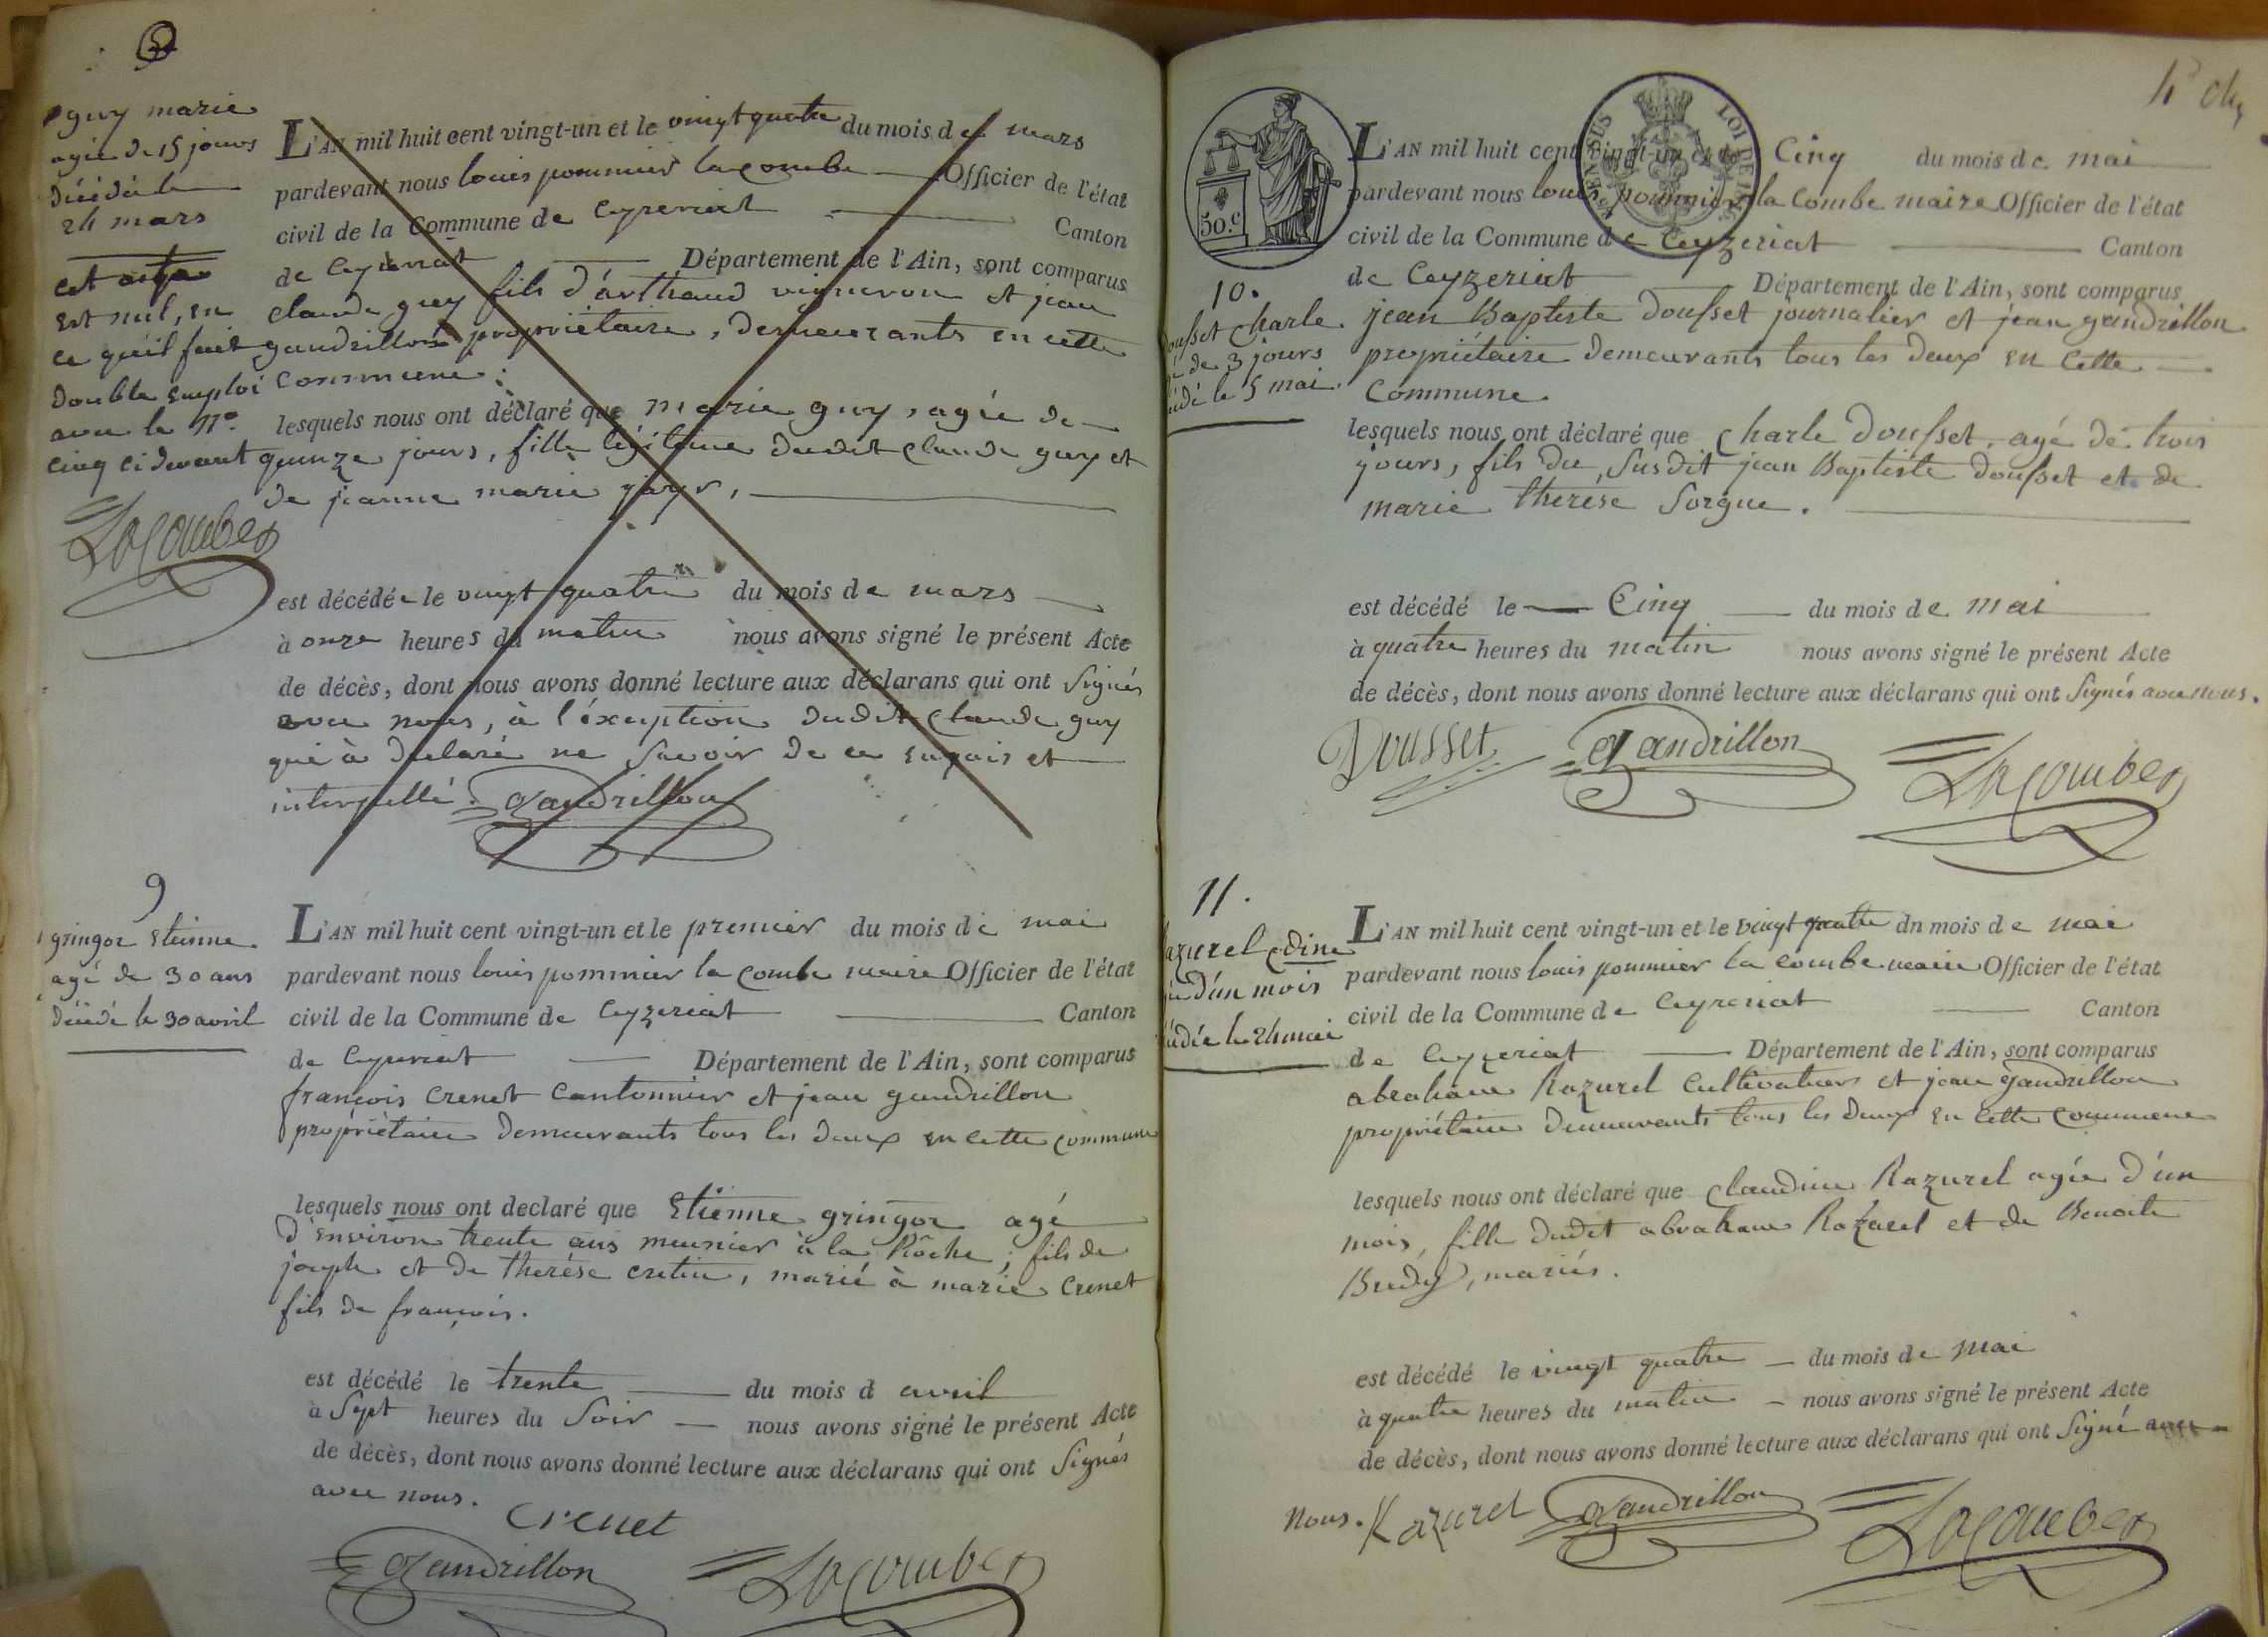 guy marie
agée de 15 jours
décédée le
24 mars
cet acte
est nul, en
ce qu'il fait
double emploi
avec le n.º
cinq ci devant
Lacombe
L'AN mil huit cent vingt-un et le vingt quatre du mois de mars
pardevant nous louis pommier la combe Officier de l'état
civil de la Commune de Ceyzeriat Canton
de Ceyzeriat Département de l'Ain, sont comparus
claude guy fils d'arthaud vigneron et jean
gandrillon propriétaire, demeurants en cette
commune.
lesquels nous ont déclaré que marie guy, agée de
quinze jours, fille légitime dudit claude guy et
de jeanne marie
est décédée le vingt quatre du mois de mars
à onze heures du matin nous avons signé le présent Acte
de décès, dont nous avons donné lecture aux déclarans qui ont signés
avec nous, à l'éxception dudit claude guy
qui à déclaré ne savoir de ce enquis et
interpellé. gandrillon
9
gringoz etienne
agé de 30 ans
décédé le 30 avril
L'AN mil huit cent vingt-un et le premier du mois de mai
pardevant nous louis pommier la combe maire Officier de l'état
civil de la Commune de Ceyzeriat Canton
de Ceyzeriat Département de l'Ain, sont comparus
françois crenet cantonnier et jean gandrillon
propriétaire demeurants tous les deux en cette commune
lesquels nous ont declaré que Etienne gringoz agé
d'environ trente ans meunier à la Rôche, fils de
joseph et de thérèse cretin, marié à marie crenet
fils de françois.
est décédé le trente du mois d avril
à sept heures du soir nous avons signé le présent Acte
de décès, dont nous avons donné lecture aux déclarans qui ont signés
avec nous.
crenet
gandrillon Lacombe
LOI DE 1816
50.c
10.
Dousset charle
de 3 jours
le 5 mai.
L'AN mil huit cent vingt-un et le Cinq du mois de mai
pardevant nous louis pommier la combe maire Officier de l'état
civil de la Commune de Ceyzeriat Canton
de Ceyzeriat Département de l'Ain, sont comparus
jean Baptiste Dousset journalier et jean gandrillon
propriétaire demeurants tous les deux en cette
commune.
lesquels nous ont déclaré que charle Dousset, agé de trois
jours, fils du susdit jean Baptiste Dousset et de
marie thérèse Sorgue.
est décédé le Cinq du mois de mai
à quatre heures du matin nous avons signé le présent Acte
de décès, dont nous avons donné lecture aux déclarans qui ont signés avec nous.
Dousset gandrillon Lacombe
11.
Razurel cdine
d'un mois
le 24 mai
L'AN mil huit cent vingt-un et le vingt quatre dn mois de mai
pardevant nous louis pommier la combe maire Officier de l'état
civil de la Commune de Ceyzeriat Canton
de Ceyzeriat Département de l'Ain, sont comparus
abraham Razurel cultivateur et jean gandrillon
propriétaire demeurants tous les deux en cette commune
lesquels nous ont déclaré que claudine Razurel agée d'un
mois, fille dudit abraham Razurel et de Benoite
mariés.
est décédé le vingt quatre du mois de mai
à quatre heures du matin nous avons signé le présent Acte
de décès, dont nous avons donné lecture aux déclarans qui ont signé avec
nous. Razurel gandrillon Lacombe